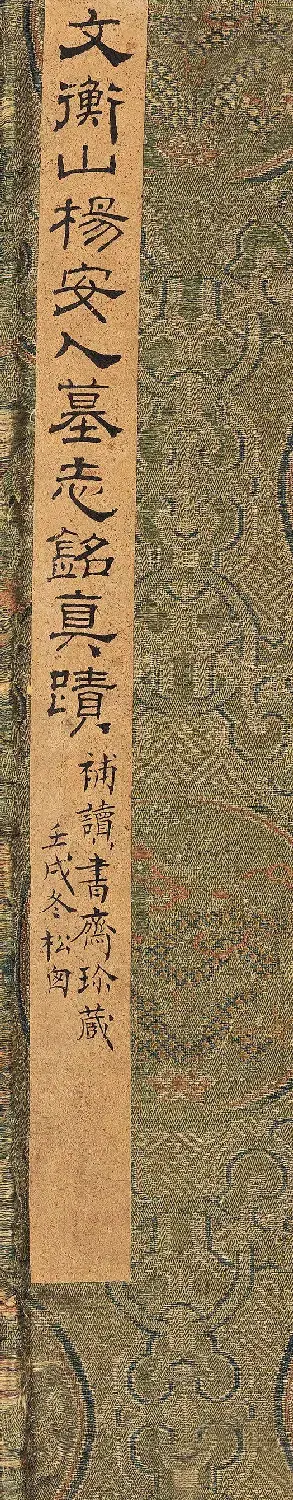 文衡山楊安人墓志銘真蹟
補讀書齋珍藏
壬戌冬松窗